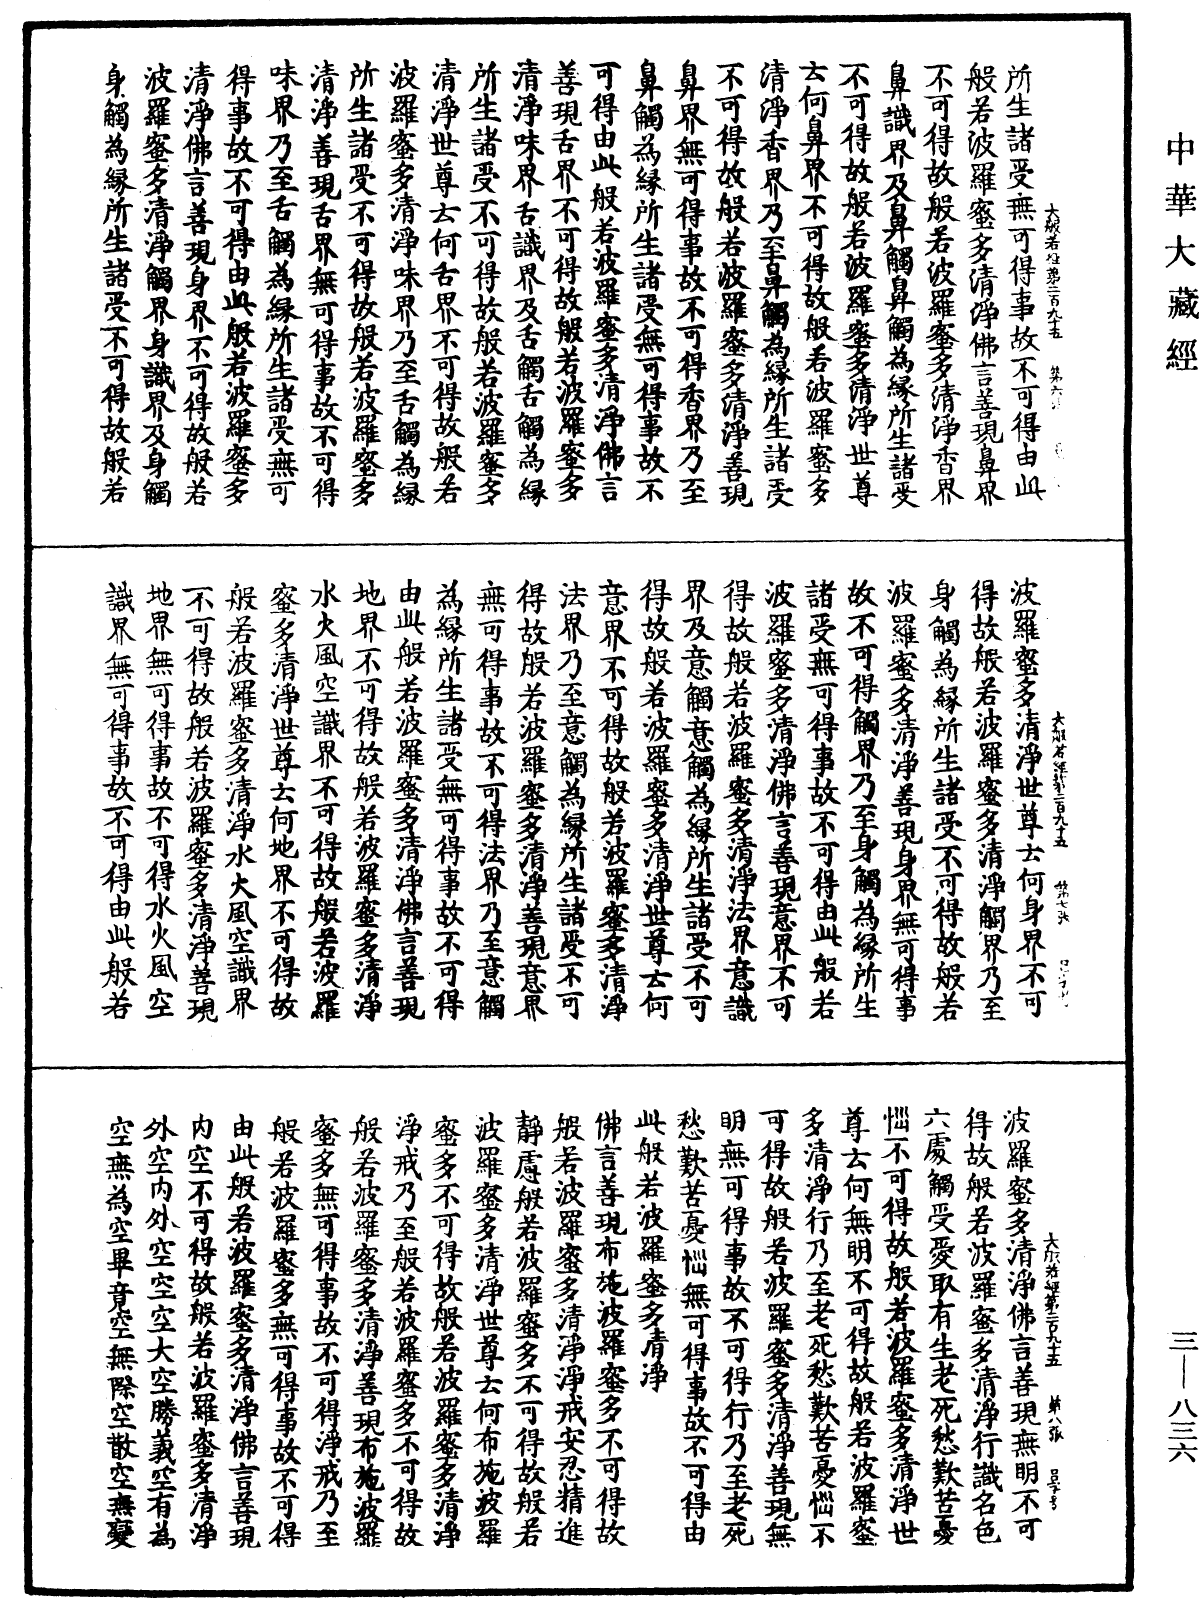 中華大藏經
大般若經第二百九十五 第六
所生諸受無可得事故不可得由此
般若波羅蜜多清淨佛言善現鼻界
不可得故般若波羅蜜多清淨香界
鼻識界及鼻觸鼻觸為緣所生諸受
不可得故般若波羅蜜多清淨世尊
云何鼻界不可得故般若波羅蜜多
清淨香界乃至鼻觸為緣所生諸受
不可得故般若波羅蜜多清淨善現
鼻界無可得事故不可得香界乃至
鼻觸為緣所生諸受無可得事故不
可得由此般若波羅蜜多清淨佛言
善現舌界不可得故般若波羅蜜多
清淨味界舌識界及舌觸舌觸為緣
所生諸受不可得故般若波羅蜜多
清淨世尊云何舌界不可得故般若
波羅蜜多清淨味界乃至舌觸為緣
所生諸受不可得故般若波羅蜜多
清淨善現舌界無可得事故不可得
味界乃至舌觸為緣所生諸受無可
得事故不可得由此般若波羅蜜多
清淨佛言善現身界不可得故般若
波羅蜜多清淨觸界身識界及身觸
身觸為緣所生諸受不可得故般若
大般若經第二百九十五 第七張
波羅蜜多清淨世尊云何身界不可
得故般若波羅蜜多清淨觸界乃至
身觸為緣所生諸受不可得故般若
波羅蜜多清淨善現身界無可得事
故不可得觸界乃至身觸為緣所生
諸受無可得事故不可得由此般若
波羅蜜多清淨佛言善現意界不可
得故般若波羅蜜多清淨法界意識
界及意觸意觸為緣所生諸受不可
得故般若波羅蜜多清淨世尊云何
意界不可得故般若波羅蜜多清淨
法界乃至意觸為緣所生諸受不可
得故般若波羅蜜多清淨善現意界
無可得事故不可得法界乃至意觸
為緣所生諸受無可得事故不可得
由此般若波羅蜜多清淨佛言善現
地界不可得故般若波羅蜜多清淨
水火風空識界不可得故般若波羅
蜜多清淨世尊云何地界不可得故
般若波羅蜜多清淨水火風空識界
不可得故般若波羅蜜多清淨善現
地界無可得事故不可得水火風空
識界無可得事故不可得由此般若
大般若經第二百九十五 第八張
波羅蜜多清淨佛言善現無明不可
得故般若波羅蜜多清淨行識名色
六處觸受愛取有生老死愁歎苦憂
惱不可得故般若波羅蜜多清淨世
尊云何無明不可得故般若波羅蜜
多清淨行乃至老死愁歎苦憂惱不
可得故般若波羅蜜多清淨善現無
明無可得事故不可得行乃至老死
愁歎苦憂惱無可得事故不可得由
此般若波羅蜜多清淨
佛言善現布施波羅蜜多不可得故
般若波羅蜜多清淨淨戒安忍精進
靜慮般若波羅蜜多不可得故般若
波羅蜜多清淨世尊云何布施波羅
蜜多不可得故般若波羅蜜多清淨
淨戒乃至般若波羅蜜多不可得故
般若波羅蜜多清淨善現布施波羅
蜜多無可得事故不可得淨戒乃至
般若波羅蜜多無可得事故不可得
由此般若波羅蜜多清淨佛言善現
內空不可得故般若波羅蜜多清淨
外空內外空空空大空勝義空有為
空無為空畢竟空無際空散空無變
三—八三六